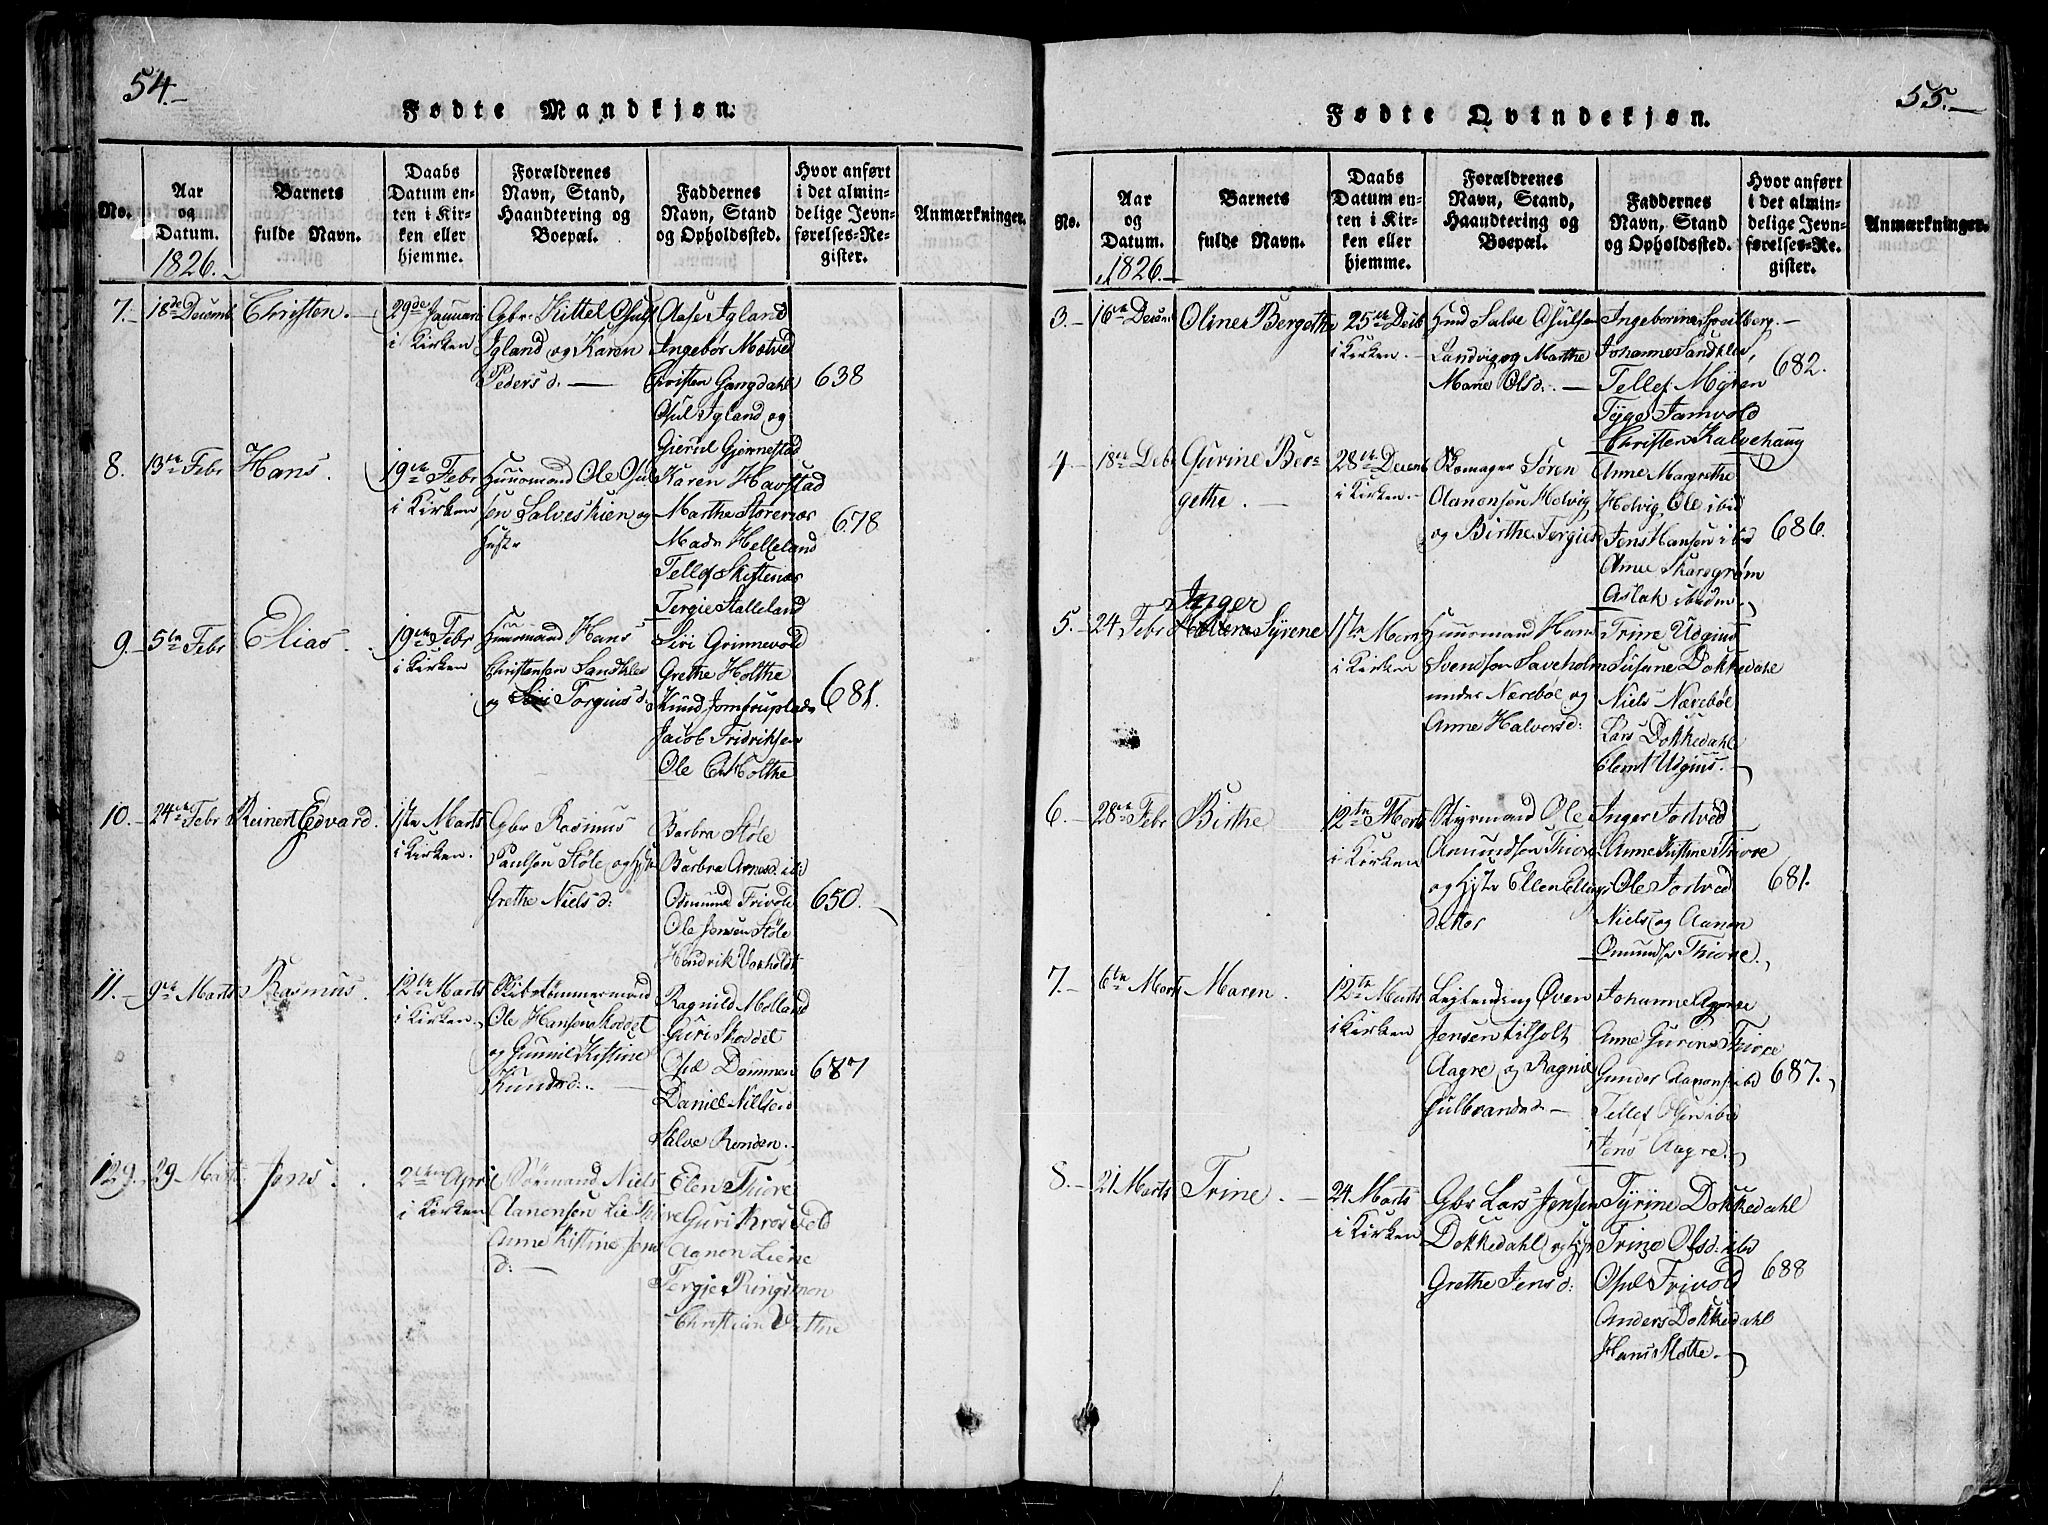 54.-
Fødte Mandkjøn.
No.
Aar
og
Datum.
1826.-
Barnets
fulde Navn.
Daabs
Datum en-
ten i Kir-
ken eller
hjemme.
Forældrenes
Navn, Stand,
Haandtering og
Boepæl.
Faddernes
Navn, Stand
og Opholdssted.
Hvor anført
i det almin-
delige Jevn-
førelses-Re-
gister.
Anmærkninger.
7.-
18de Decemb
Christen.
29de Januari
i Kirken
Gbr. Kittel Osuls
Igland og Karen
Peders d:
Aase Igland
Ingebor Motved
Christen Gangdahl
Osul Igland og
Gjerul Gjennestad
638
8.-
13te Febr
Hans.
19te Febr
i Kirken
Huusmand Ole Osul
sen Salveskien og
Hustr
Karen Havstad
Marthe Storenæs
Mads Helleland
Tellef Skiftenæs
Tergie Stalleland
678
9.-
5te Febr
Elias.
19te Febr
i Kirken
Huusmand Hans
Christensen Sandklev
og Siri Torgius d:
Siri Grinnevold
Grethe Holthe
Knud Jomfrueplads
Jacob Fridriksen
Ole Holthe
681.
10.-
24te Febr
Reinert Edvard.
1ste Marts
i Kirken.
Gbr Rasmus
Paulsen Støle og Hstr
Grethe Niels d:
Barbra Støle
Barbra Arnesd: ib
Osmund Frivold
Ole Jensen Støle
Hendrik Vaxholdt
650.
11.-
9de Marts
Rasmus.
12te Marts
i Kirken.
Skibstømmermand
Ole Hansen Skoddet
og Gunnil Kistine
Knuds d:
Ragnild Molland
Guri Skoddet
Osul Dammen
Daniel Nielsen
Salve Rønden.
687
129.
29 Marts
Jens.
2den April
i Kirken
Sømand Niels
Aanonsen Lie Thore
Anne Kistine Jens
d:
Elen Thore
Guri Krosvold
Aanon Liene
Tergie Ringsmon
Christian Vattne
55.-
Fødte Qvindekjøn.
No.
Aar
og
Datum.
1826.-
Barnets
fulde Navn.
Daabs
Datum en-
ten i Kir-
ken eller
hjemme.
Forældrenes
Navn, Stand,
Haandtering og
Boepæl.
Faddernes
Navn, Stand
og Opholdssted.
Hvor anført
i det almin-
delige Jevn-
førelses-Re-
gister.
Anmærkninger.
3.-
16de Decemb
Oline Bergethe
25de Decb
i Kirken.
Hmd Salve Osulsen
Landvig og Marthe
Marie Olsd:
Ingeborine Speilberg.-
Johanne Sandklev,
Tellef Myren
Tyge Jamvold
Christen Kalvehaug
682.
4.-
18de Deb
Gurine Ber-
gethe.-
28de Decemb
i Kirken.-
Skomager Søren
Aanonsen Holvig
og Birthe Tergies d
Anne Margrethe
Holvig, Ole ibid
Jens Hansen ibid
Anne Skarsgrøm
Aslak ibidm
686.
5.-
24 Febr
Inger
Syrene
1ste Mart
i Kirken
Huusmand Hans
Svendsen Saveholm
under Nærebøe og
Anne Halvorsd:
Trine Udgius
Susane Dokkedahl
Niels Nærebøe
Lars Dokkedahl
Clemt Udgius.
6.-
28de Febr
Birthe
12te Marts
i Kirken
Styrmand Ole
Amundsen Thore
og Hstr Ellen Ellings
datter
Inger Tostved
Anne Kistine Thore
Ole Tostved
Niels og Aanon
Omunds Thore.
681.
7.-
6te Marts
Maren.
12te Marts
i Kirken
Leilending Øven
Jensen tilholt
Aagre og Ragnil
Gulbrands d
Johanne Agerøe
Anne Gurine Thore
Gunder Aanons ibd
Tellef Olsen ibd
Jens Aagre.
687.
8.-
21 Marts
Trine.
24 Marts
i Kirken
Gbr Lars Jensen
Dokkedahl og Hstr
Grethe Jens d:
Tyrine Dokkedahl
Trine Olsd: ibd
Osul Frivold
Anders Dokkedahl
Hans Slotte.
688